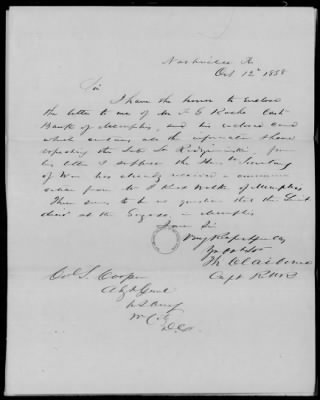 Nashville
Oct 12th 1858
Sir
I have the honor to enclose
the letter to me of Mr F. G. Cash
Bank of Memphis, and his enclosed card
which contains all the information I have
respecting the late Lt from
his letter I suppose the Hon. Secretary
of War has already received a communi
cation from Mr Walker of Memphis
There seems to be no question that the Lieut
died at the Gayoso in Memphis
I am Sir
Very Respectfully
Yr Obt Svt
Claiborne
Capt R.M.R
Col S. Cooper
Adj Genl
U S Army
W. City
D.C.